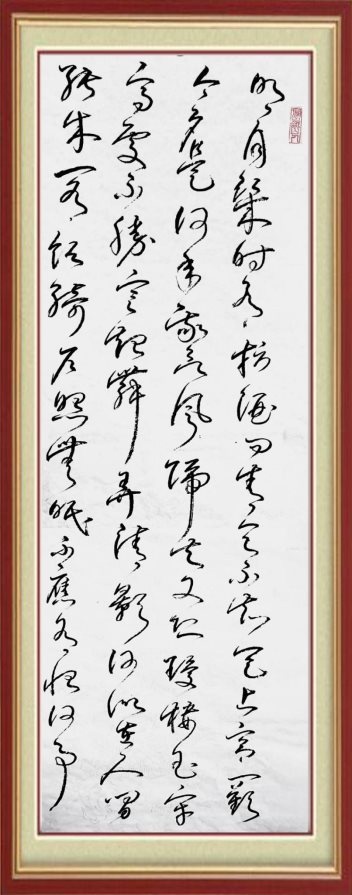 明月幾时有把酒问青天不知天上宫阙
今夕是何年我欲乘風歸去又恐瓊樓玉宇
高處不勝寒起舞弄清影何似在人間
轉朱閣低綺户照無眠不應有恨何事